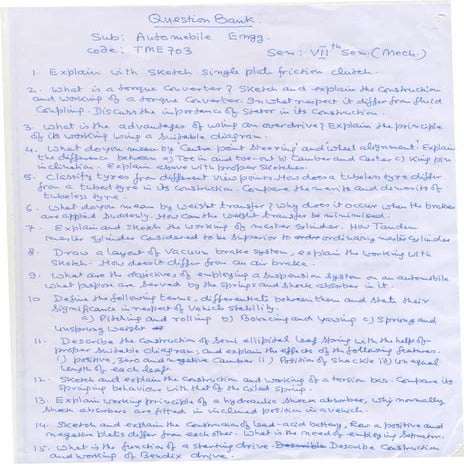 Question Bank.
Sub: Automobile Engg.
Code: TME703 Sem: VIIth Sem. (Mech.)
1. Explain with sketch single plate friction clutch.
2. What is a torque converter? Sketch and explain the construction
and working of a torque converter. In what respect it differ from fluid
coupling. Discuss the importance of stator in its construction.
3. What is the advantages of using an overdrive? Explain the principle
of its working using a suitable diagram.
4. What do you mean by 'Centre point steering' and wheel alignment? Explain
the difference between a) Toe in and toe-out b) Camber and Caster c) King pin
inclination. Explain above with proper sketches.
5. Classify tyres from different view points. How does a tubeless tyre differ
from a tubed tyre in its construction. Compare the merits and demerits of
tubeless tyre.
6. What do you mean by weight transfer? Why does it occur when the brakes
are applied suddenly. How can the weight transfer be minimised.
7. Explain and sketch the working of master cylinder. How Tandem
master cylinder considered to be superior to ordinary master cylinder
8. Draw a layout of vacuum brake system, explain the working with
sketch. How does it differ from an air brake.
9. What are the objectives of employing a suspension system on an automobile
what purpose are served by the springs and shock absorber in it.
10 Define the following terms, differentiate between them and state their
significance in respect of vehicle stability.
a) Pitching and rolling b) Bouncing and yawing c) Sprung and
unsprung weight
11. Describe the construction of semi elliptical leaf spring with the help of
proper suitable diagram, and explain the effects of the following features.
i) positive, zero and negative camber ii) Position of shackle iii) Unequal
length of each leaf.
12. Sketch and explain the construction and working of a torsion bar. Compare its
springing behaviour with that of the coiled spring.
13. Explain working principle of a hydraulic shock absorber, why normally
shock absorbers are fitted in inclined position in a vehicle.
14. Sketch and explain the construction of lead-acid battery, How a positive and
negative plates differ from each other. What is the need of employing separator.
15. What is the function of a starting drive Describe Construction
and working of Bendix drive.